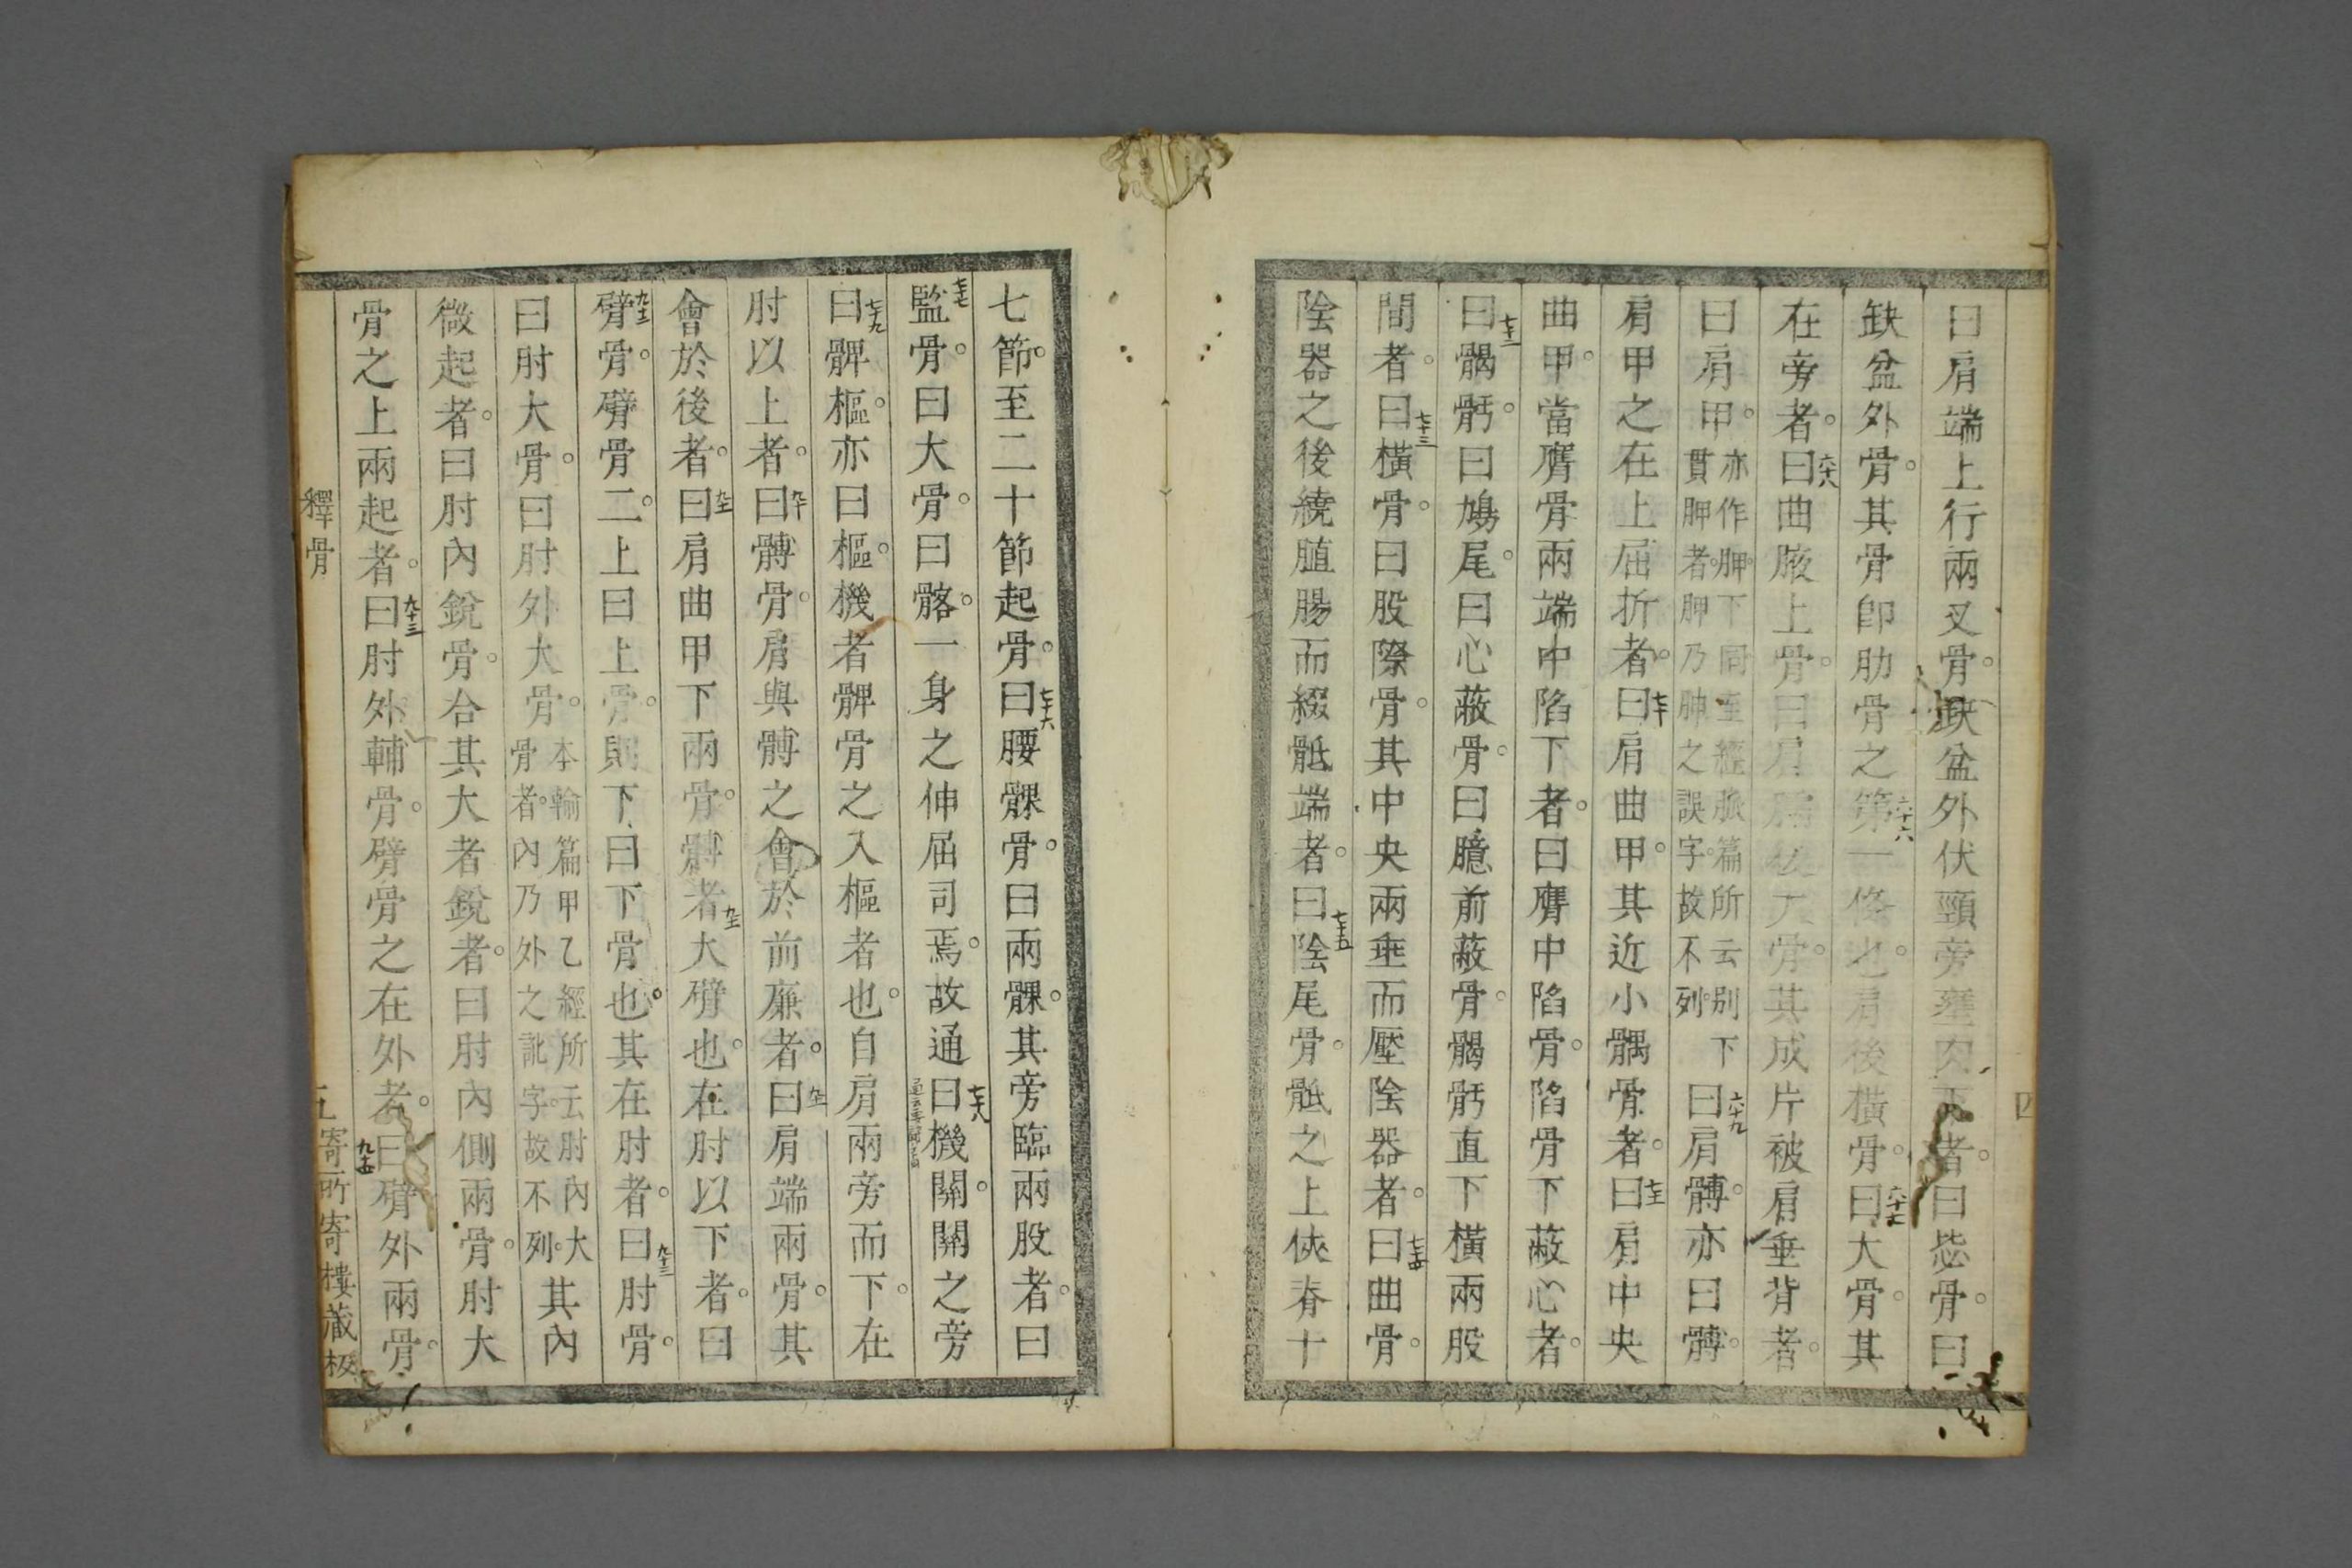 曰肩端上行兩叉骨。缺盆外伏頸旁壅肉下者。曰𩩲骨。曰
缺盆外骨。其骨卽肋骨之第一條也。肩後橫骨。曰大骨。其
在旁者。曰曲腋上骨。曰肩髃後大骨。其成片被肩垂背者。
曰肩甲。亦作胛。下同。至經脈篇所云別下貫胛者。胛乃胂之誤字。故不列。曰肩髆。亦曰髆。
肩甲之在上屈折者。曰肩曲甲。其近小髃骨者。曰肩中央
曲甲。當膺骨兩端中陷下者。曰膺中陷骨。陷骨下蔽心者。
曰𩩲骬。曰鳩尾。曰心蔽骨。曰臆前蔽骨。𩩲骬直下橫兩股
間者。曰橫骨。曰股際骨。其中央兩垂而壓陰器者。曰曲骨。
陰器之後繞膻腸而綴骶端者。曰陰尾骨。骶之上俠脊十
四
七節。至二十節起骨。曰腰髁骨。曰兩髁。其旁臨兩股者。曰
監骨。曰大骨。曰髂。一身之伸屈司焉。故通曰機關。關之旁
曰髀樞。亦曰樞。樞機者髀骨之入樞者也。自肩兩旁而下。在
肘以上者。曰髆骨。肩與髆之會於前廉者。曰肩端兩骨。其
會於後者。曰肩曲甲下兩骨。髆者大臂也。在肘以下者。曰
臂骨。臂骨二。上曰上骨。則下曰下骨也。其在肘者。曰肘骨。
曰肘大骨。曰肘外大骨。本輸篇甲乙經所云肘內大骨者。內乃外之訛字。故不列。其內
微起者。曰肘內銳骨。合其大者銳者。曰肘內側兩骨。肘大
骨之上兩起者。曰肘外輔骨。臂骨之在外者。曰臂外兩骨。
釋骨
五
寄所寄樓藏板